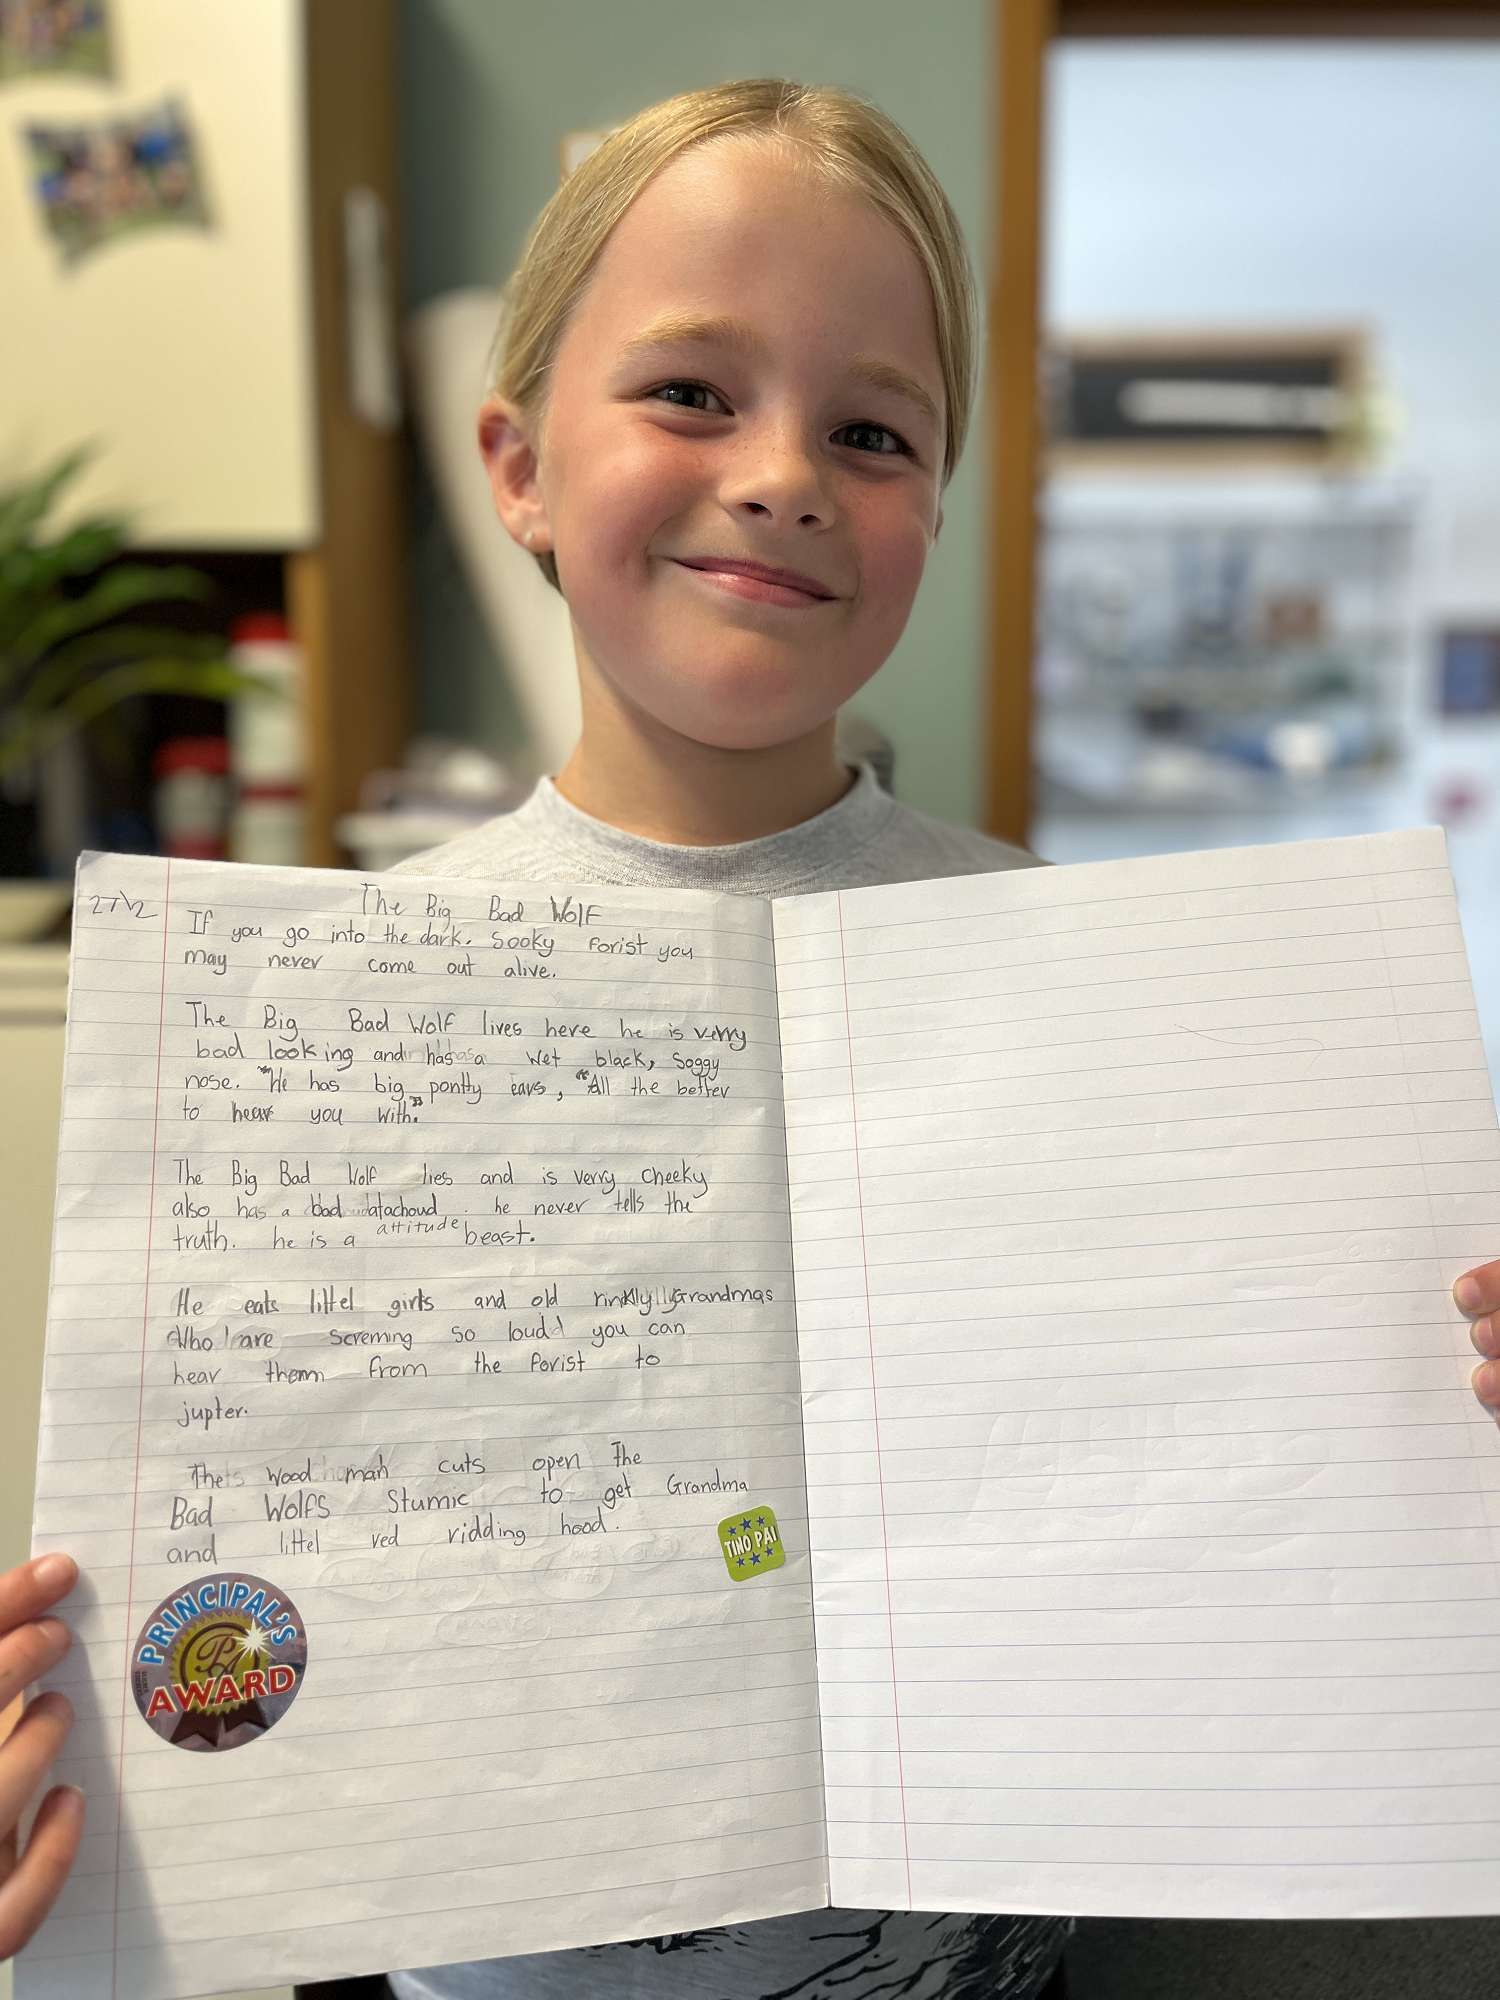 27\2
The Big Bad Wolf
If you go into the dark. Sooky forist you
may never come out alive.
The Big Bad Wolf lives here he is verry
bad looking and has a wet black, soggy
nose. "He has big pontty ears, "All the better
to hear you with."
The Big Bad Wolf lies and is verry cheeky
also has a bad atachoud. he never tells the
truth. he is a attitude beast.
He eats littel girls and old Grandmas
Who are screming so loud you can
hear them from the forist to
jupter.
The wood man cuts open the
Bad Wolfs Stumic to get Grandma
and littel red ridding hood.
TINO PAI
PRINCIPAL'S
PA
AWARD